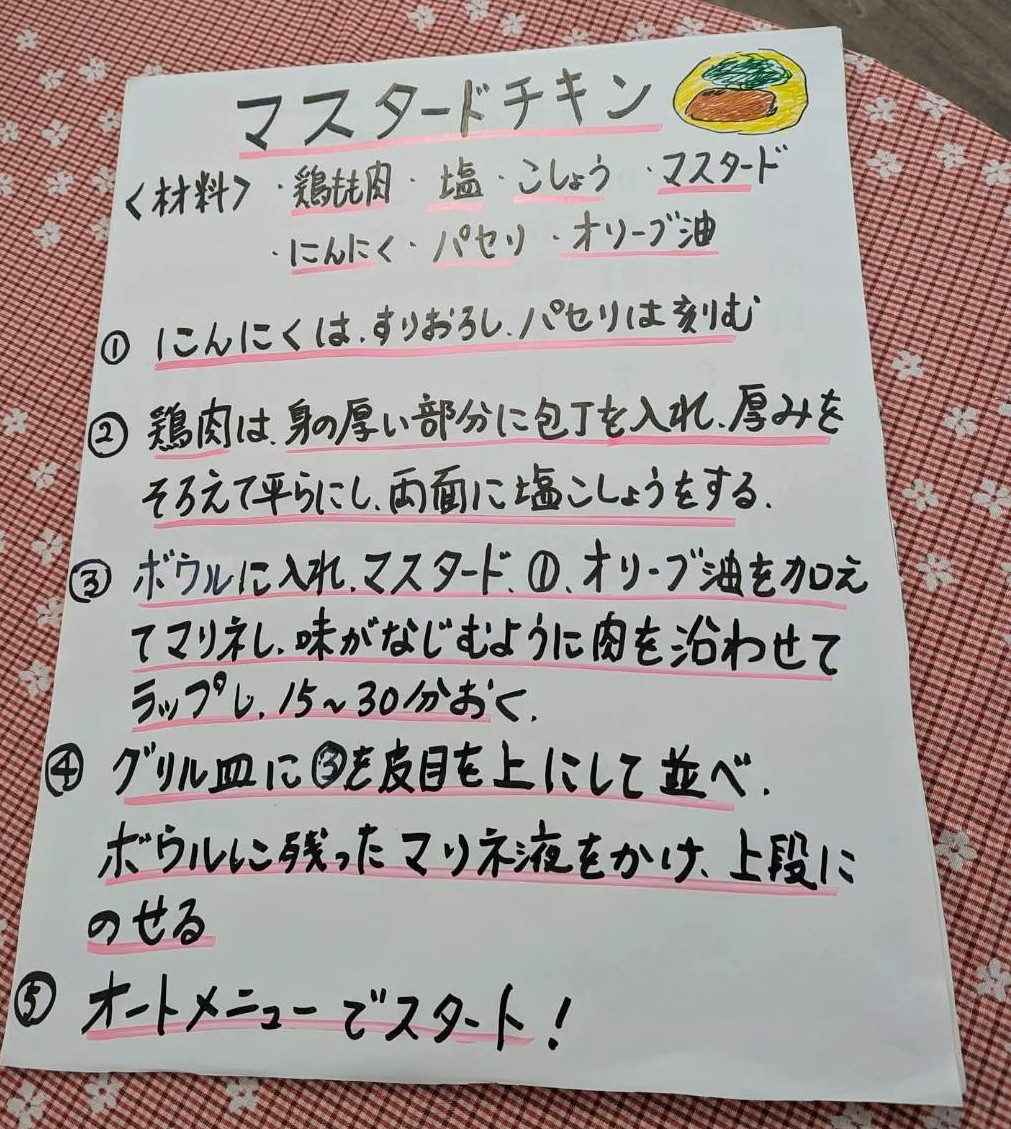 マスタードチキン
〈材料〉 ・鶏もも肉・ 塩・こしょう ・マスタード
・にんにく・パセリ・オリーブ油
① にんにくは、すりおろし、パセリは刻む
② 鶏肉は、身の厚い部分に包丁を入れ、厚みを
そろえて平らにし、両面に塩こしょうをする。
③ ボウルに入れ、マスタード、①、オリーブ油を加え
てマリネし、味がなじむように肉を沿わせて
ラップし、15～30分おく。
④ グリル皿に③を皮目を上にして並べ、
ボウルに残ったマリネ液をかけ、上段に
のせる
⑤ オートメニューでスタート!